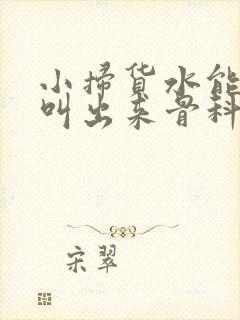 小掃货水能
叫出来骨科
宋翠